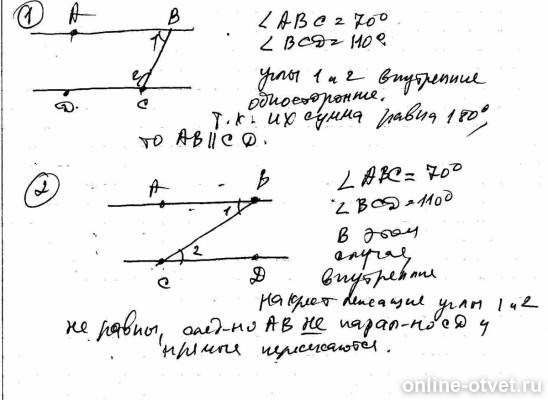 ① A B ∠ABC = 70°
∠BCD = 110°
1
2
D. C
углы 1 и 2 внутренние
односторонние.
т.к. их сумма равна 180°,
то AB || CD.
② A B ∠ABC = 70°
∠BCD = 110°
1
2
C D
В этом
случае
внутренние
накрест лежащие углы 1 и 2
не равны, след-но AB не парал-но CD и
прямые пересекаются.
online-otvet.ru